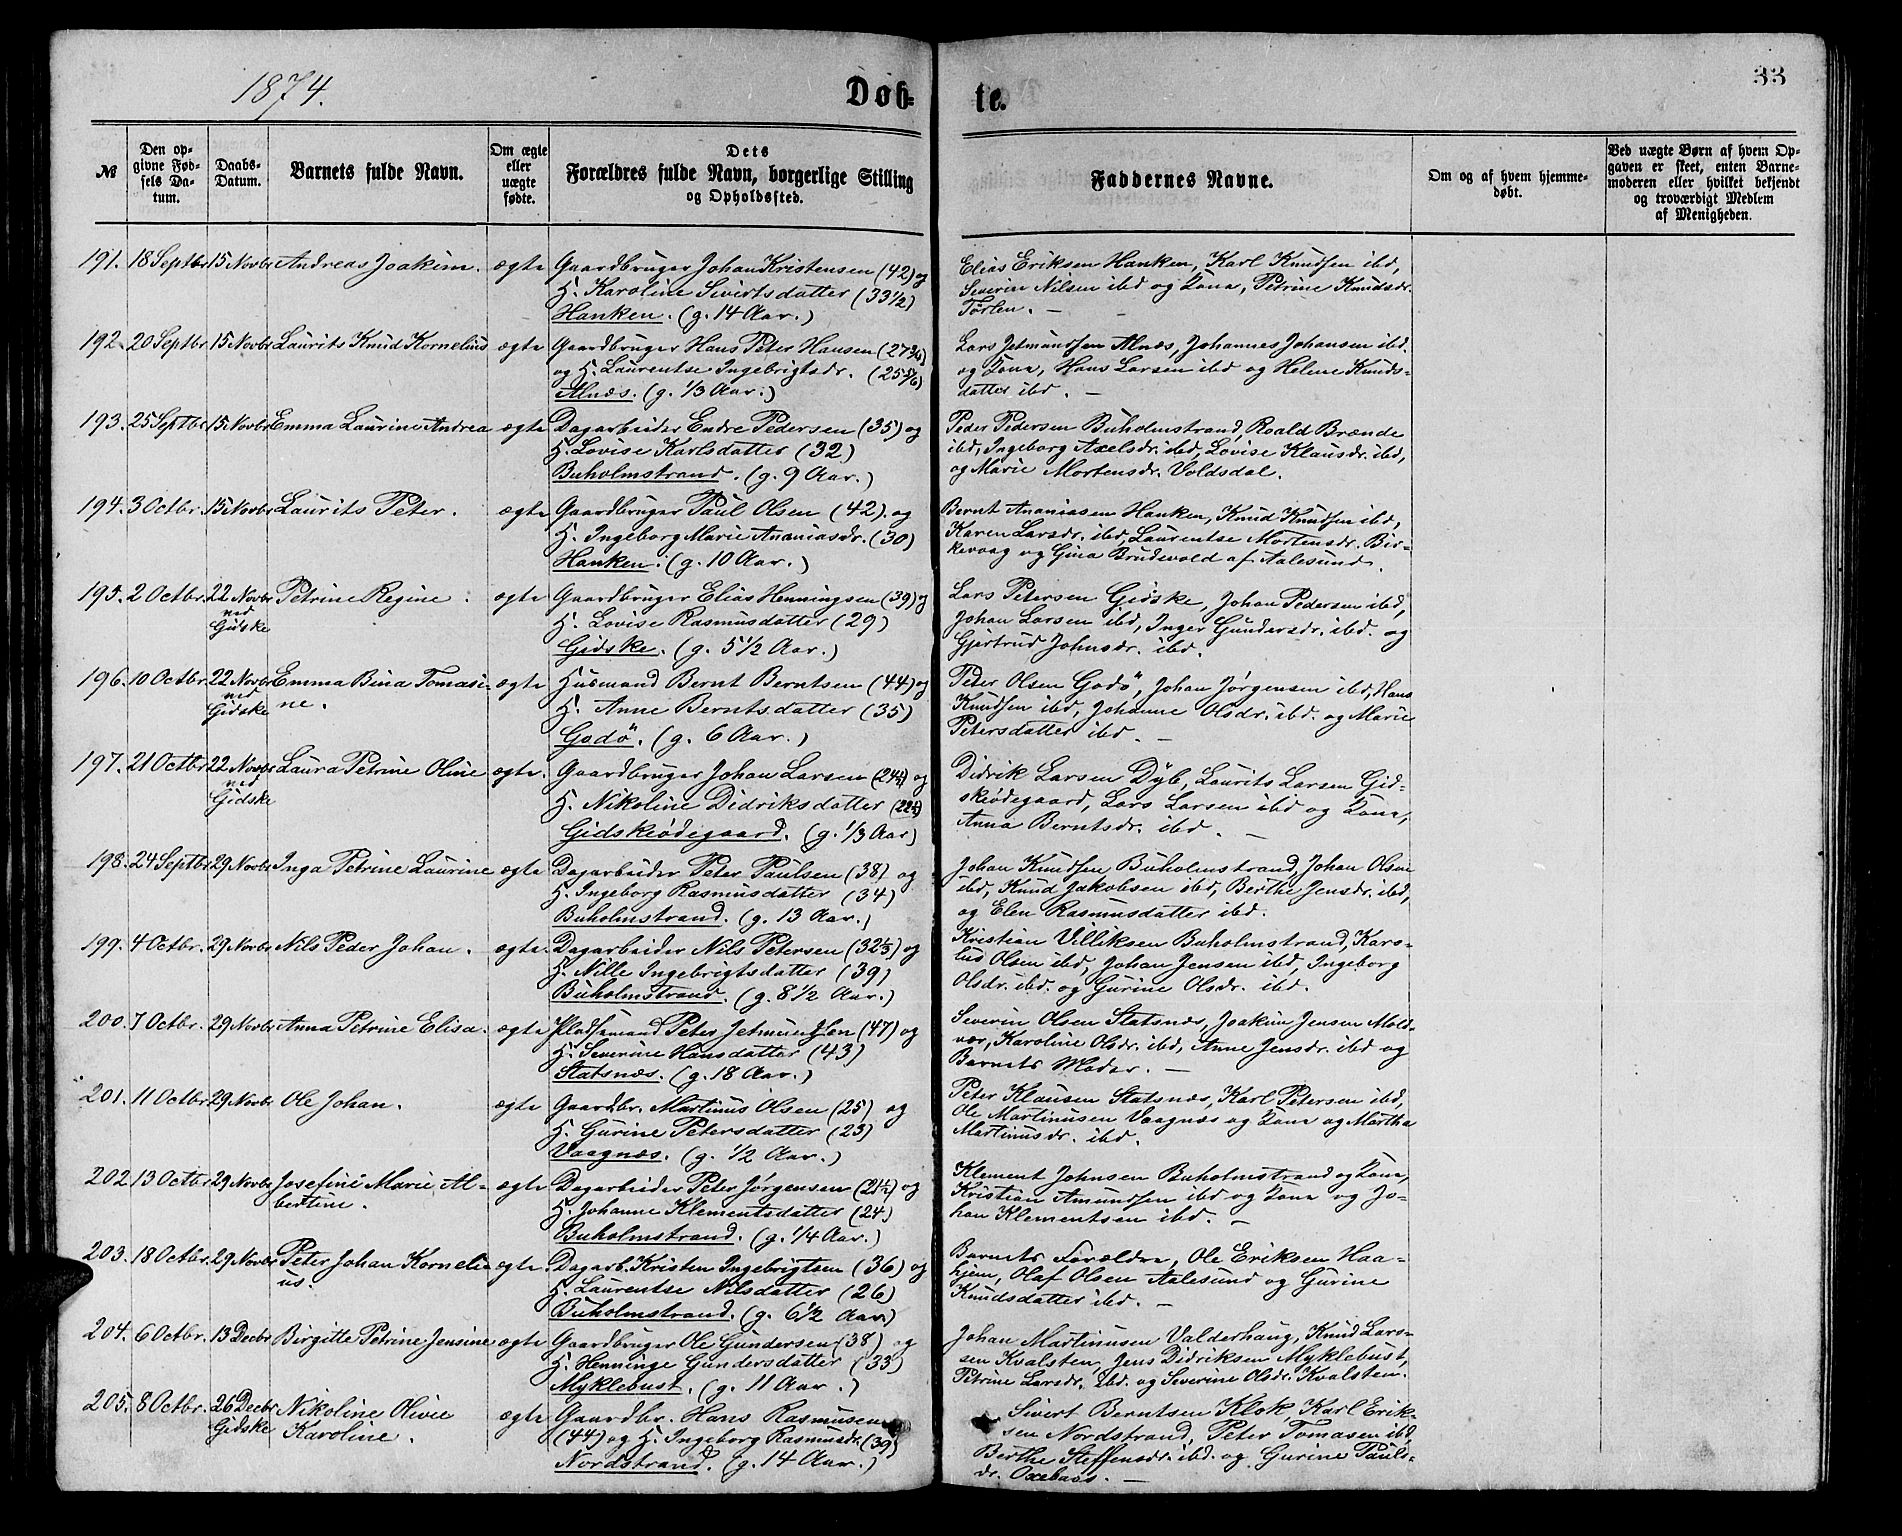 1874.
Døb=
te.
33
№
Den op-
givne Fød-
sels Da-
tum.
Daabs-
Datum.
Barnets fulde Navn.
Om ægte
eller
uægte
fødte.
Dets
Forældres fulde Navn, borgerlige Stilling
og Opholdssted.
Faddernes Navne.
Om og af hvem hjemme-
døbt.
Ved uægte Børn af hvem Op-
gaven er skeet, enten Barne-
moderen eller hvilket bekjendt
og troværdigt Medlem
af Menigheden.
191. 18 Septbr 15 Novbr Andreas Joakim. ægte Gaardbruger Johan Kristensen (42) og
H. Karoline Sivertsdatter (33 1/2)
Hanken. (g. 14 Aar.)
Elias Eriksen Hanken, Karl Knudsen ibd,
Severin Nilsen ibd og Kona, Petrine Knudsdr.
Tørlen. —
192. 20 Septbr. 15 Novbr Laurits Knud Kornelius ægte Gaardbruger Hans Peter Hansen (27 3/4)
og H. Laurentse Ingebrigtsdr. (25 5/6)
Alnæs. (g. 1/3 Aar.)
Lars Jetmundsen Alnæs, Johannes Johansen ibd.
og Kona, Hans Larsen ibd og Helene Knuds-
datter ibd. —
193. 25 Septbr 15 Novbr Emma Laurine Andrea ægte Dagarbeider Endre Pedersen (35) og
H. Lovise Karlsdatter (32)
Buholmstrand. (g. 9 Aar.)
Peder Pedersen Buholmstrand, Roald Brænde
ibd, Ingeborg Axelsdr. ibd, Lovise Klausdr. ibd,
og Marie Mortensdr. Voldsdal.
194. 3 Octbr. 15 Novbr Laurits Peter. ægte Gaardbruger Paul Olsen (42). og
H. Ingeborg Marie Ananiasdr. (30)
Hanken. (g. 10 Aar.)
Bernt Ananiasen Hanken, Knud Knudsen ibd,
Karen Larsdr. ibd, Laurentse Mortensdr. Bir-
kevaag og Gina Brudevold af Aalesund.
195. 2 Octbr. 22 Novbr Petrine Regine. ægte Gaardbruger Elias Henningsen (39) og
ved
Gidske
H. Lovise Rasmusdatter (29)
Gidske. (g. 5 1/2 Aar.)
Lars Petersen Gidske, Johan Pedersen ibd,
Johan Larsen ibd, Inger Gundersdr. ibd. og
Gjertrud Johnsdr. ibd.
196. 10 Octbr. 22 Novbr Emma Bina Tomasi- ægte Husmand Bernt Berntsen (44) og
ved
Gidske
ne.
H. Anne Berntsdatter (35)
Godö. (g. 6 Aar.)
Peter Olsen Godö, Johan Jørgensen ibd, Hans
Knudsen ibd, Johanne Olsdr. ibd. og Marie
Petersdatter ibd. —
197. 21 Octbr 22 Novbr Laura Petrine Oline ægte. Gaardbruger Johan Larsen og
ved
Gidske
H. Nikoline Didriksdatter
Gidskeødegaard. (g. 1/3 Aar)
Didrik Larsen Dyb, Laurits Larsen Gid-
skeødegaard, Lars Larsen ibd og Kona,
Anna Berntsdr. ibd. —
198. 24 Septbr 29 Novbr Inga Petrine Laurine ægte Dagarbeider Peter Paulsen (38) og
H. Ingeborg Rasmusdatter (34)
Buholmstrand. (g. 13 Aar.)
Johan Knudsen Buholmstrand, Johan Olsen
ibd, Knud Jakobsen ibd, Berthe Jensdr. ibd,
og Elen Rasmusdatter ibd.
199. 4 Octbr. 29 Novbr Nils Peder Johan. ægte Dagarbeider Nils Petersen (32 1/3) og
H. Nille Ingebrigtsdatter (39)
Buholmstrand. (g. 8 1/2 Aar.)
Kristian Villiksen Buholmstrand, Karo-
lus Olsen ibd, Johan Jensen ibd, Ingeborg
Olsdr. ibd. og Gurine Olsdr. ibd.
200. 7 Octbr. 29 Novbr Anna Petrine Elisa. ægte Pladsemand Peter Jetmundsen (47) og
H. Severine Hansdatter (43)
Statsnæs. (g. 18 Aar.)
Severin Olsen Statsnæs, Joakim Jensen Mold-
vær, Karoline Olsdr. ibd, Anne Jensdr. ibd og
Barnets Moder. —
201. 11 Octbr 29 Novbr Ole Johan. ægte Gaardbr. Martinus Olsen (25) og
H. Gurine Petersdatter (23)
Vaagnæs. (g. 1/2 Aar.)
Peter Klausen Statsnæs, Karl Petersen ibd,
Ole Martinusen Vaagnæs og Kona og Martha
Martinusdr. ibd.
202 13 Octbr 29 Novbr Josefine Marie Al- ægte Dagarbeider Peter Jørgensen og
bertine.
H. Johanne Klementsdatter (24)
Buholmstrand. (g. 1/4 Aar.)
Klement Johnsen Buholmstrand og Kona,
Kristian Amundsen ibd og Kona og Jo-
han Klementsen ibd. —
203. 18 Octbr. 29 Novbr Peter Johan Korneli- ægte. Dagarb. Kristen Ingebrigtsen (36) og
us.
H. Laurentse Nilsdatter (26)
Buholmstrand. (g. 6 1/2 Aar.)
Barnets Forældre, Ole Eriksen Haa-
hjem, Olaf Olsen Aalesund og Gurine
Knudsdatter ibd. —
204. 6 Octbr. 13 Decbr Birgitte Petrine Jensine ægte Gaardbruger Ole Gundersen (38) og
H. Henninge Gundersdatter (33)
Myklebust. (g. 11 Aar.)
Johan Martinusen Valderhaug, Knud Lars-
sen Kvalsten, Jens Didriksen Myklebust,
Petrine Larsdr. ibd. og Severine Olsdr. Kvalsten.
205. 8 Octbr. 26 Decbr Nikoline Olivie ægte Gaardbr. Hans Rasmusen
Gidske
Karoline.
(44) og H. Ingeborg Rasmusdr. (39)
Nordstrand. (g. 14 Aar.)
Sivert Berntsen Klok, Karl Erik-
sen Nordstrand, Peter Tomasen ibd,
Berthe Steffensdr. ibd. og Gurine Pauls-
dr. Oxebaas. —